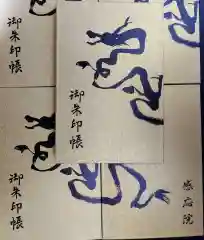 御朱印帳
御朱印帳
御朱印帳
感応院